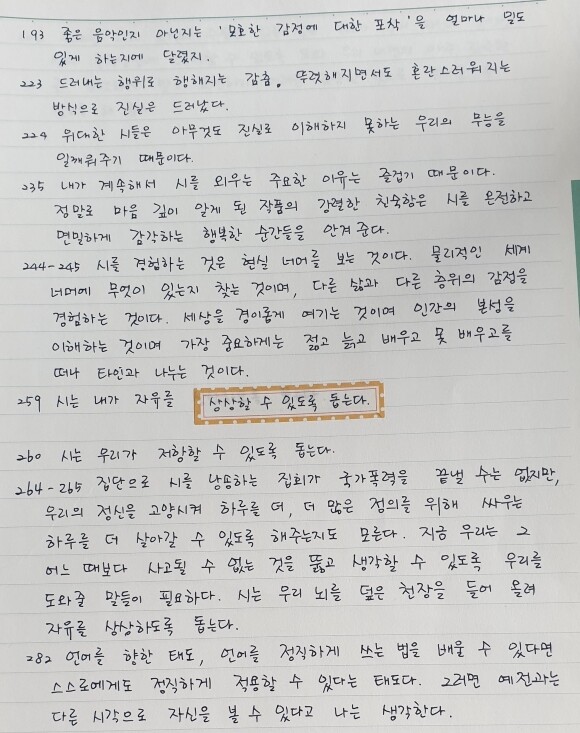 193 좋은 음악인지 아닌지는 '모호한 감정에 대한 포착'을 얼마나 밀도
있게 하는지에 달렸지.
223 드러내는 행위로 행해지는 감춤. 뚜렷해지면서도 혼란스러워지는
방식으로 진실은 드러났다.
224 위대한 시들은 아무것도 진실로 이해하지 못하는 우리의 무능을
일깨워주기 때문이다.
235 내가 계속해서 시를 외우는 주요한 이유는 즐겁기 때문이다.
정말로 마음 깊이 알게 된 작품의 강렬한 친숙함은 시를 온전하고
면밀하게 감각하는 행복한 순간들을 안겨 준다.
244-245 시를 경험하는 것은 현실 너머를 보는 것이다. 물리적인 세계
너머에 무엇이 있는지 찾는 것이며, 다른 삶과 다른 층위의 감정을
경험하는 것이다. 세상을 경이롭게 여기는 것이며 인간의 본성을
이해하는 것이며 가장 중요하게는 젊고 늙고 배우고 못 배우고를
떠나 타인과 나누는 것이다.
259 시는 내가 자유를 상상할 수 있도록 돕는다.
260 시는 우리가 저항할 수 있도록 돕는다.
264-265 집단으로 시를 낭송하는 집회가 국가폭력을 끝낼 수는 없지만,
우리의 정신을 고양시켜 하루를 더, 더 많은 정의를 위해 싸우는
하루를 더 살아갈 수 있도록 해주는지도 모른다. 지금 우리는 그
어느 때보다 사고될 수 없는 것을 뚫고 생각할 수 있도록 우리를
도와줄 말들이 필요하다. 시는 우리 뇌를 덮은 천장을 들어 올려
자유를 상상하도록 돕는다.
282 언어를 향한 태도, 언어를 정직하게 쓰는 법을 배울 수 있다면
스스로에게도 정직하게 적용할 수 있다는 태도다. 그러면 예전과는
다른 시각으로 자신을 볼 수 있다고 나는 생각한다.